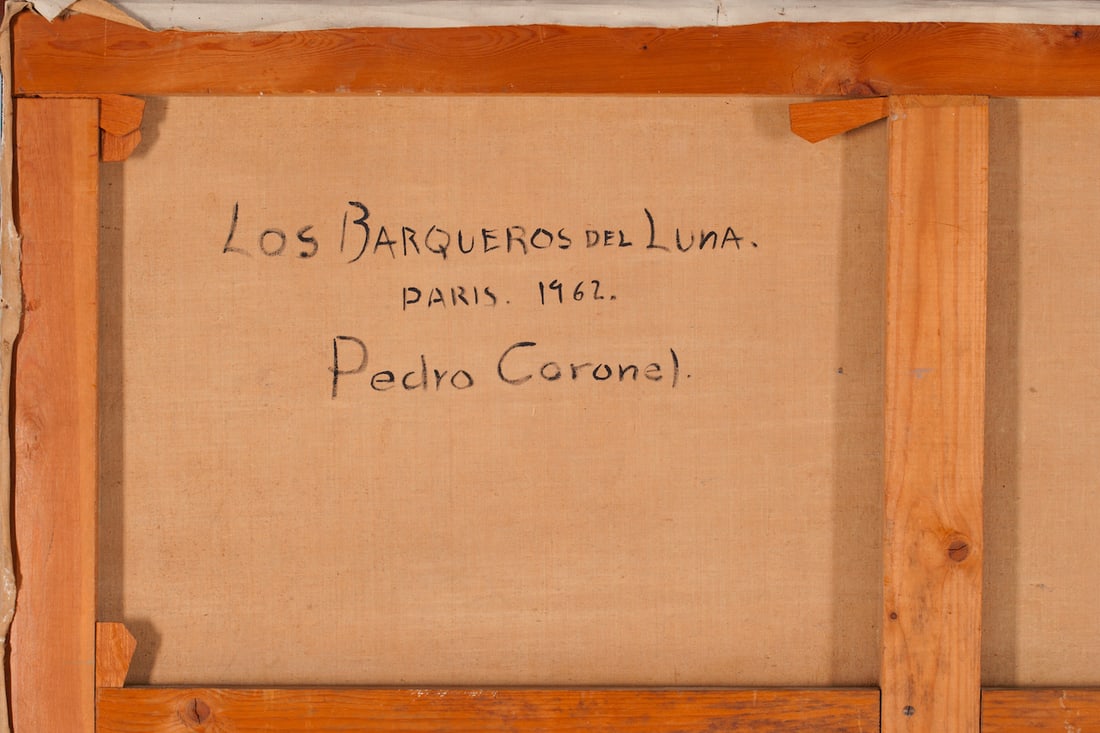 Los BARQUEROS DEL LUNA.
PARIS. 1962.
Pedro Coronel.